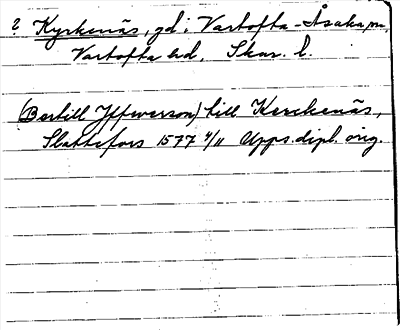 ? Kyrkenäs, gd i Vartofta-Åsaka sn,
Vartofta hd, Skar. l.
(Bertill Iffwerson) till Kerckenäs,
Slattefors 1577 4/11 Upps. dipl. orig.